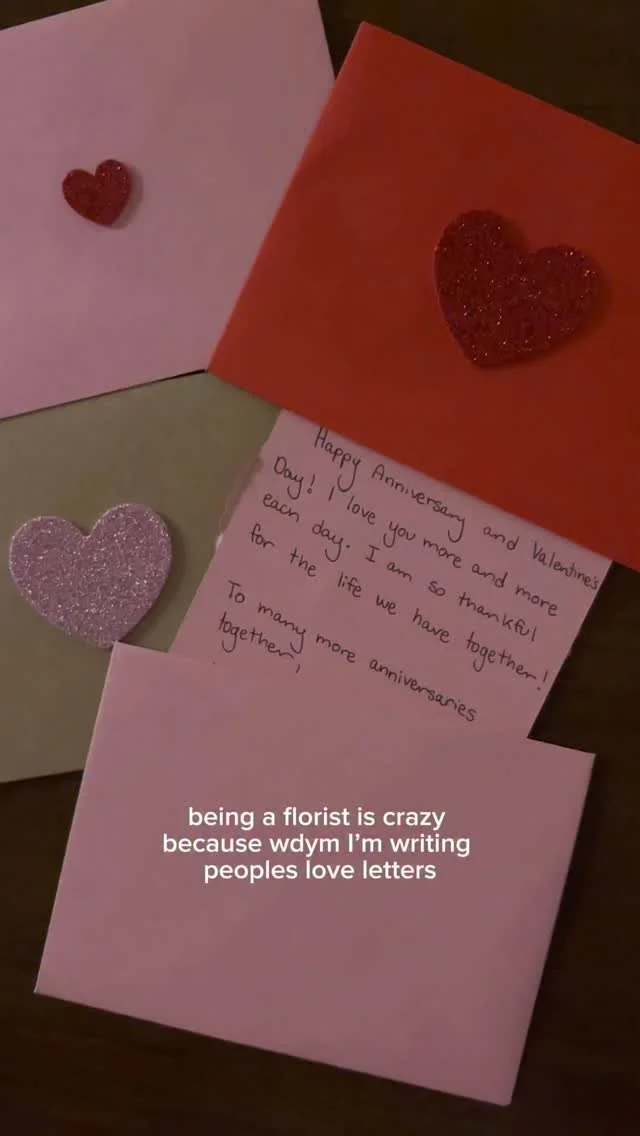 Happy Anniversary and Valentine's
Day! I love you more and more
each day. I am so thankful
for the life we have together!
To many more anniversaries
together,
being a florist is crazy
because wdym I'm writing
peoples love letters